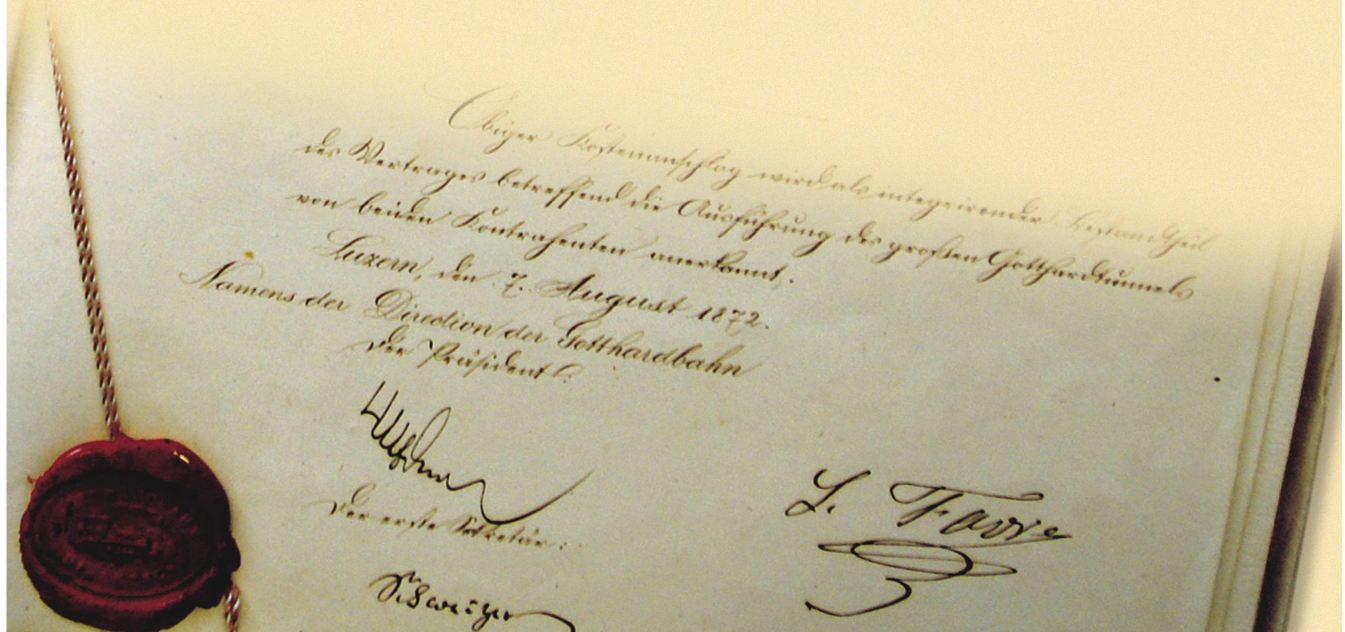 Obiger Kostenanschlag wird als integrirender Bestandtheil
des Vertrages betreffend die Ausführung des großen Gotthardtunnels
von beiden Kontrahenten anerkannt.
Luzern, den 7. August 1872.
Namens der Direction der Gotthardbahn
Der Präsident:
L. Favre
Der erste Sekretär:
Schweizer